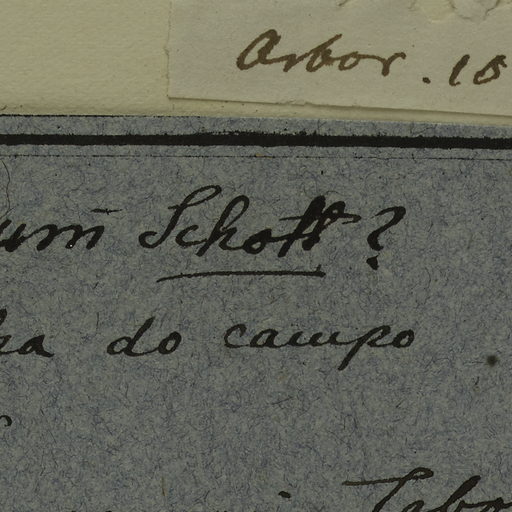 Arbor. 18
um Schott?
do campo